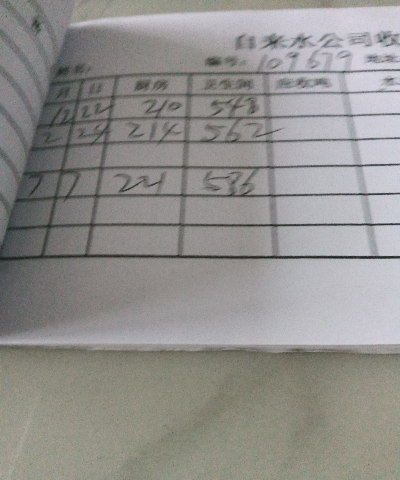 自来水公司收
姓名: 编号: 109679 地址
月 日 厨房 卫生间
12 22 210 548
2 24 214 562
7 7 221 586